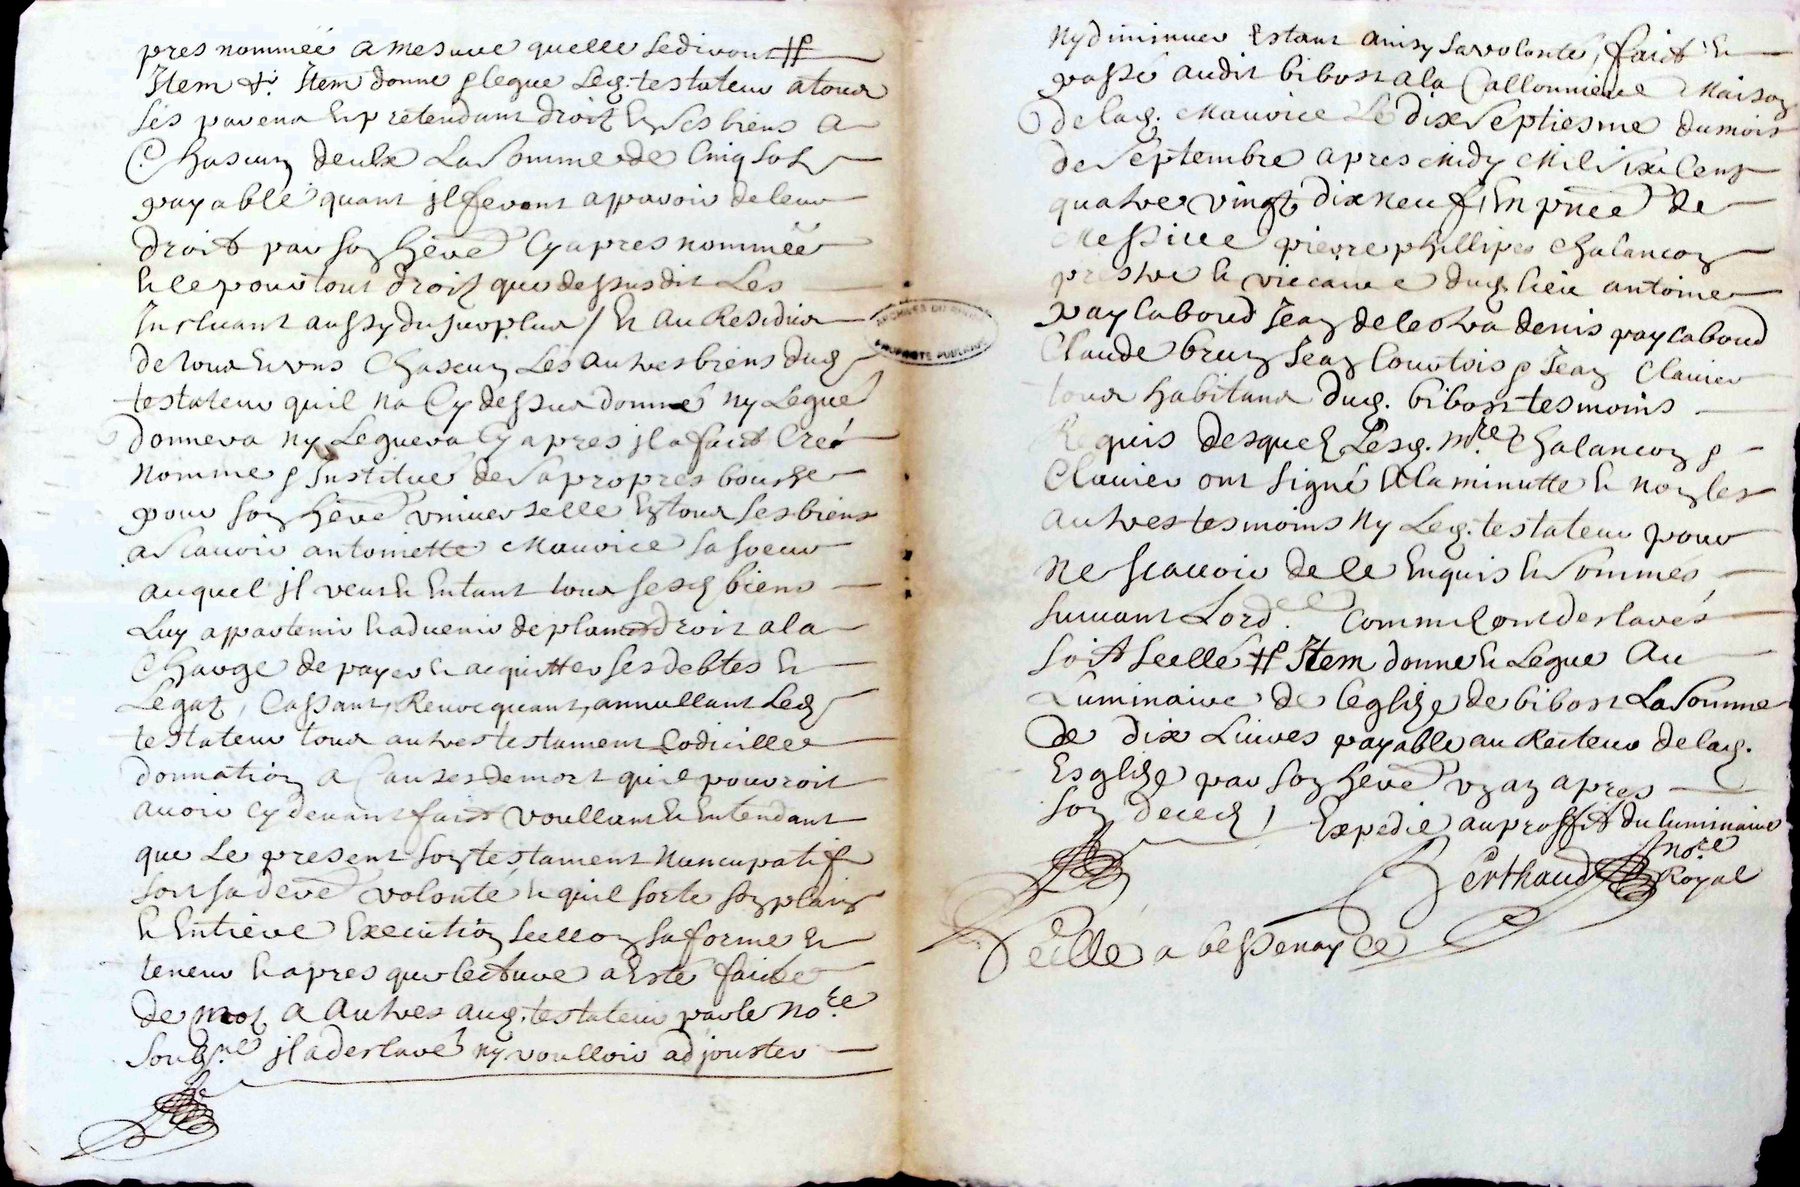 pres nommée a mesure quelle se diront #
Item & Item donne & legue led. testateur a tous
ses parens & pretendant droit en ses biens a
Chascun deulx La Somme de Cinq solz
payable quant jl feront apparoir de leur
droit par son here Cy apres nommée
& ce pour tout droit que dessus dit Les
Incluant aussy du surplus / & Au Residiu
de tous & uns Chascun Les autres biens dud
testateur quil na Cy dessus donné ny Legué
donnera ny Leguera Cy apres jl a fait Creé
nomme & Institué de sa propres bouche
pour son here universelle en tous ses biens
a scavoir antoinette Mauvice sa soeur
auquel jl veut & Entant tous sesd biens
Luy appartenir & advenir de plain droit a la
Charge de payer & acquitter ses debtes &
Legaz, Cassant, Revocquant, annullant Led
testateur tous autres testament Codicilles
donnation a Causes de mort quil pouvroit
avoir cy devant fait Voullant & Entendant
que Le present son testament nuncupatif
soit sa dere volonté & quil sorte son plain
& Entiere Execution sellon sa forme &
teneur & apres que lecture a Esté faicte
de mot a Autres aud. testateur par le Nore
soubne jl a desclaré ny voulloir adjouster
ny diminuer Estant ainsy sa volonté, faict &
passé audit bibost a la Callonniere Maison
de lad. Mauvice Le dix septiesme du mois
de septembre apres Midy Mil six Cent
quatre vingt dix neuf, En pnce de
Messire pierre phillipes Chalancon
prestre & viccaire dud lieu antoine
paylaboud Jean de leolva denis paylaboud
Claude brun Jean Courtois & Jean Clavier
tous habitans dud. bibost tesmoins
Requis desquelz Lesd. mre Chalancon &
Clavier ont signé A la minutte & non les
autres tesmoins ny Led. testateur pour
ne scavoir de ce Enquis & Sommes
suivant Lord. Comme ont desclarés
soit seellé # Item donne & Legue Au
Luminaire de leglize de bibost La Somme
de dix Livres payable au Recteur de lad.
Esglize par son here un an apres
son deced / Expedié au proffit du luminaire
Berthaud nore
Royal
Seellé a bessenay Ce
ARCHIVES DU RHÔNE
PROPRIÉTÉ PUBLIQUE